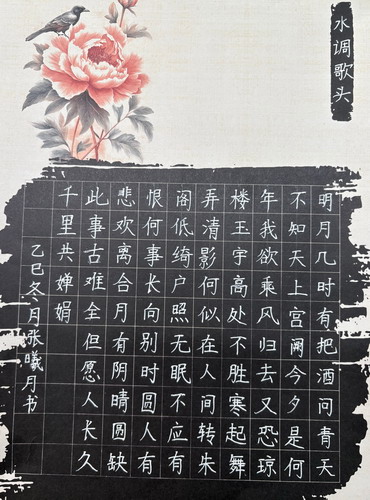 水调歌头
明月几时有把酒问青天
不知天上宫阙今夕是何
年我欲乘风归去又恐琼
楼玉宇高处不胜寒起舞
弄清影何似在人间转朱
阁低绮户照无眠不应有
恨何事长向别时圆人有
悲欢离合月有阴晴圆缺
此事古难全但愿人长久
千里共婵娟
乙巳冬月张曦月书